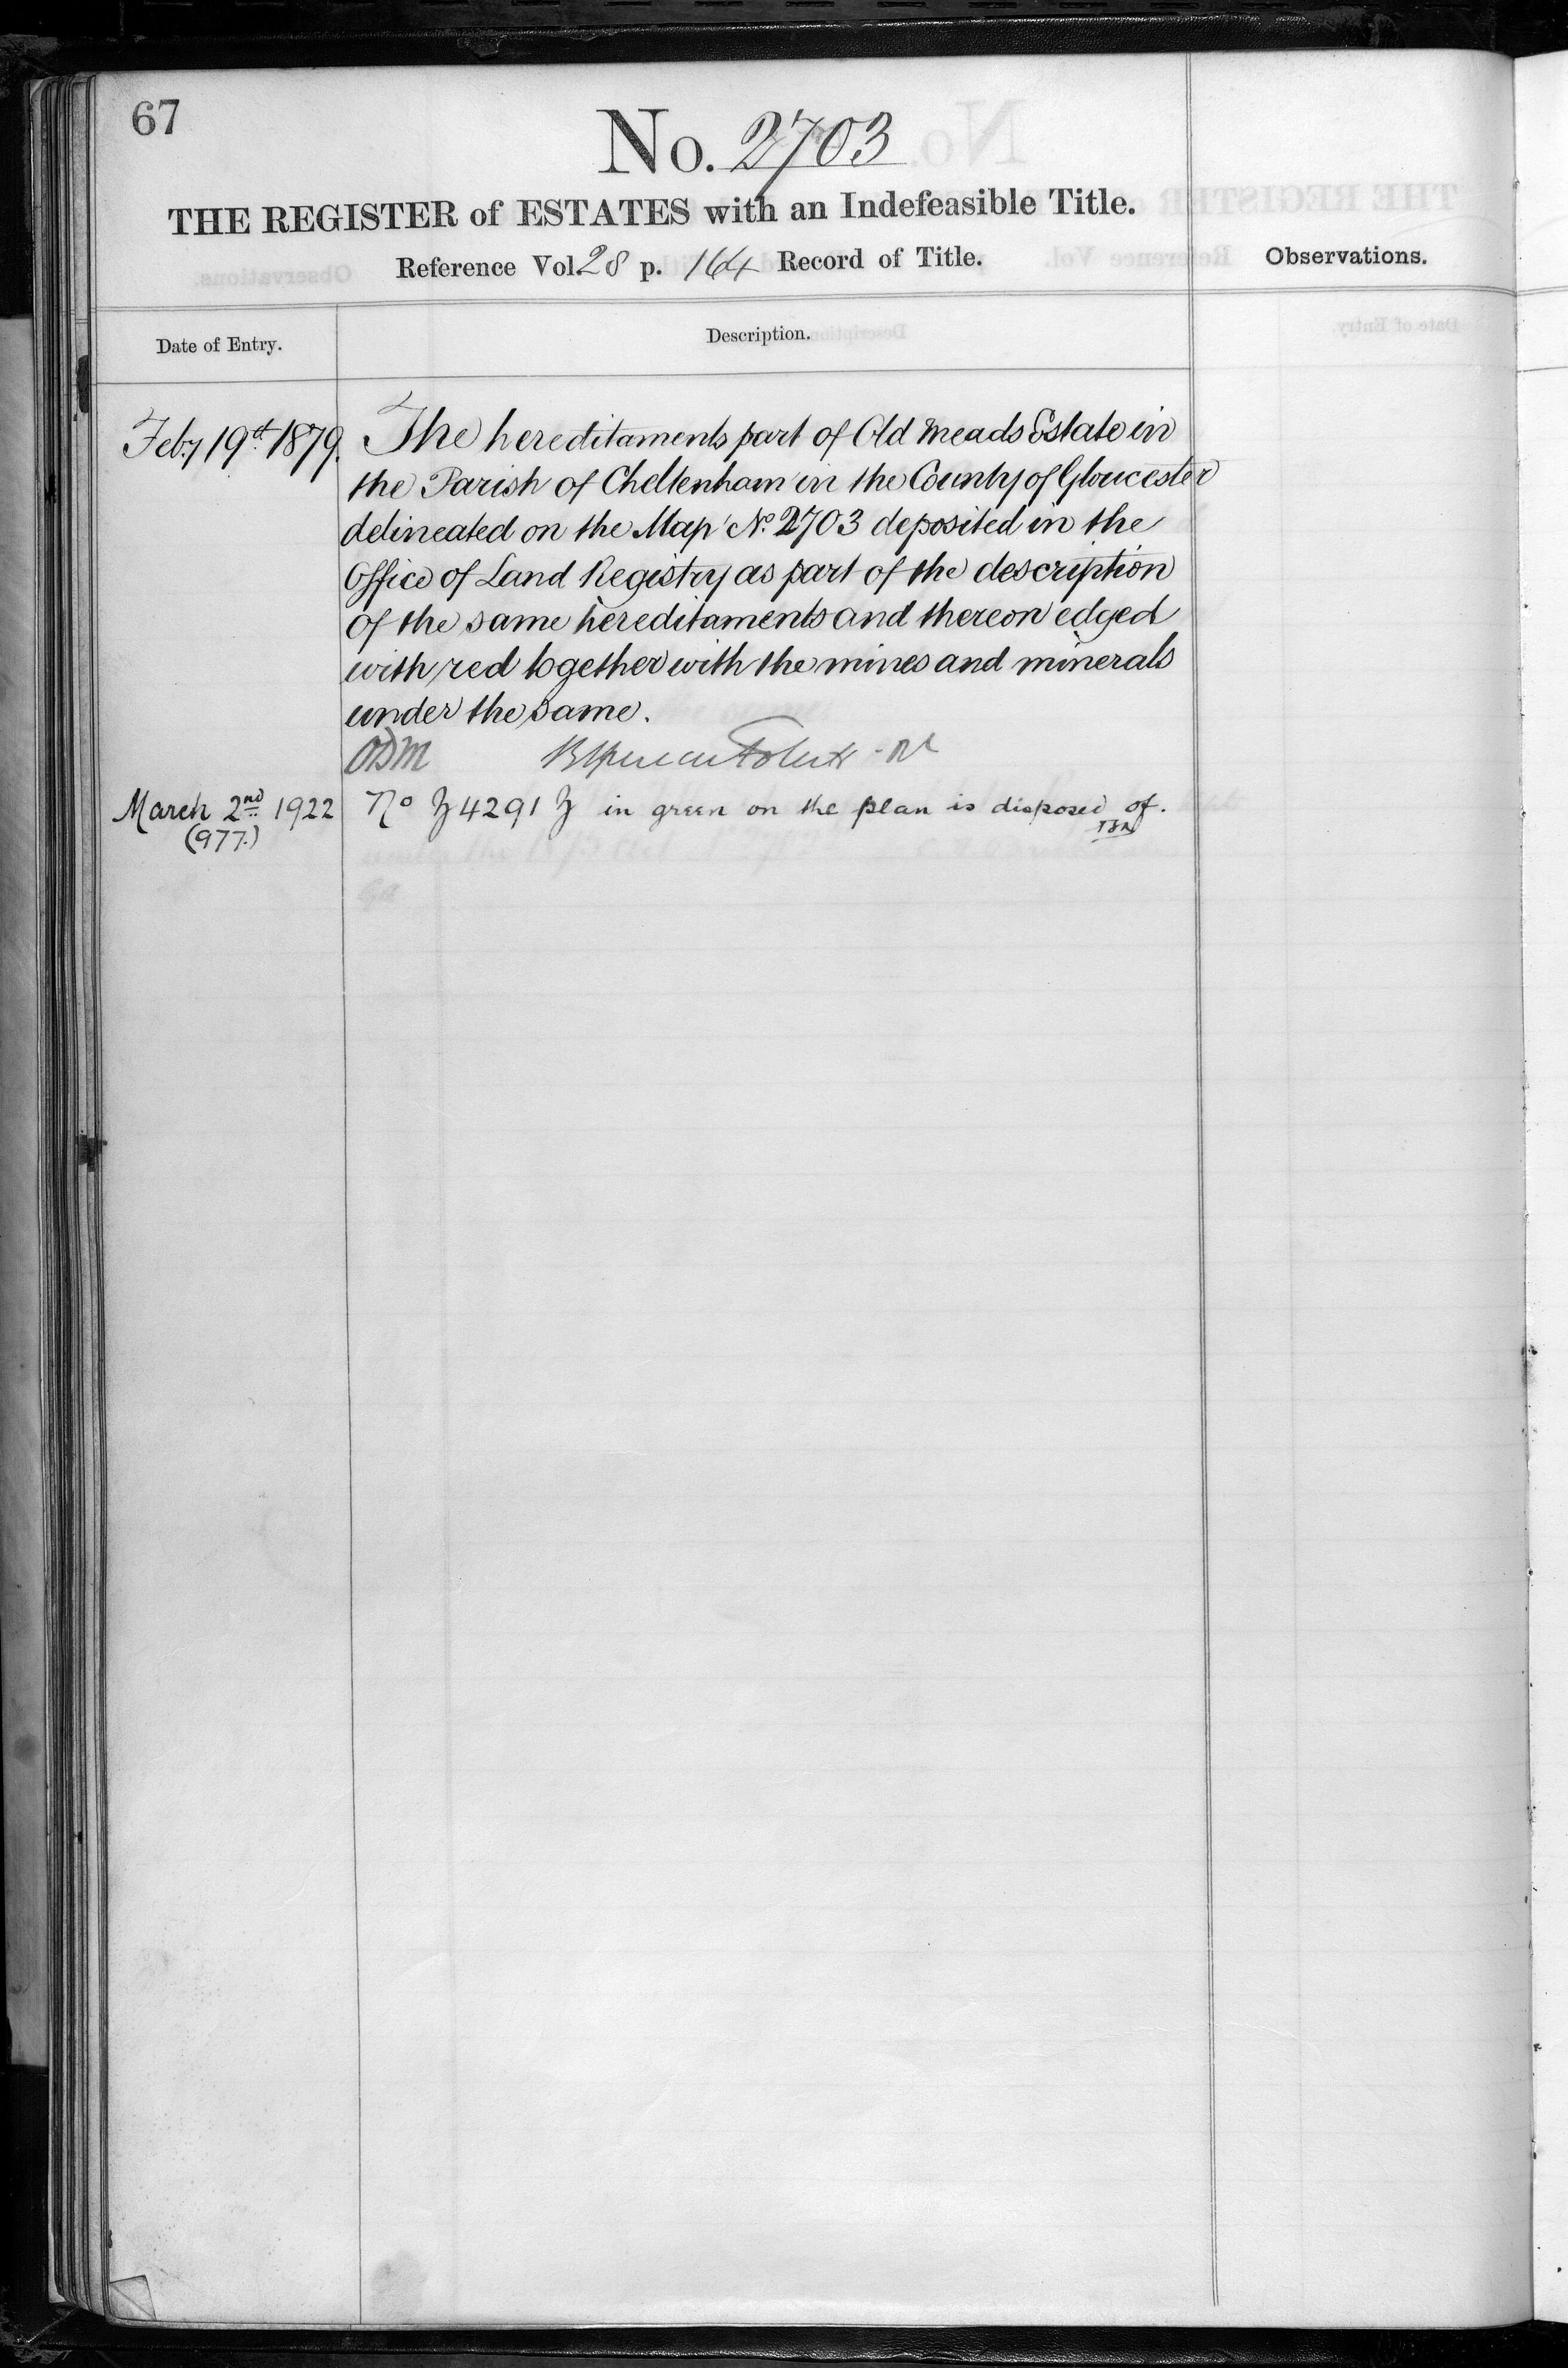 67
No. 2703
THE REGISTER of ESTATES with an Indefeasible Title.
Reference Vol. 28 p. 164 Record of Title.
Observations.
Date of Entry.
Description.
Feby 19th 1879. The hereditaments part of Old Meads Estate in
the Parish of Cheltenham in the County of Gloucester
delineated on the Map No. 2703 deposited in the
Office of Land Registry as part of the description
of the same hereditaments and thereon edged
with red together with the mines and minerals
under the same.
ODM
March 2nd 1922 No Z 4291 Z in green on the plan is disposed of.
(977.)